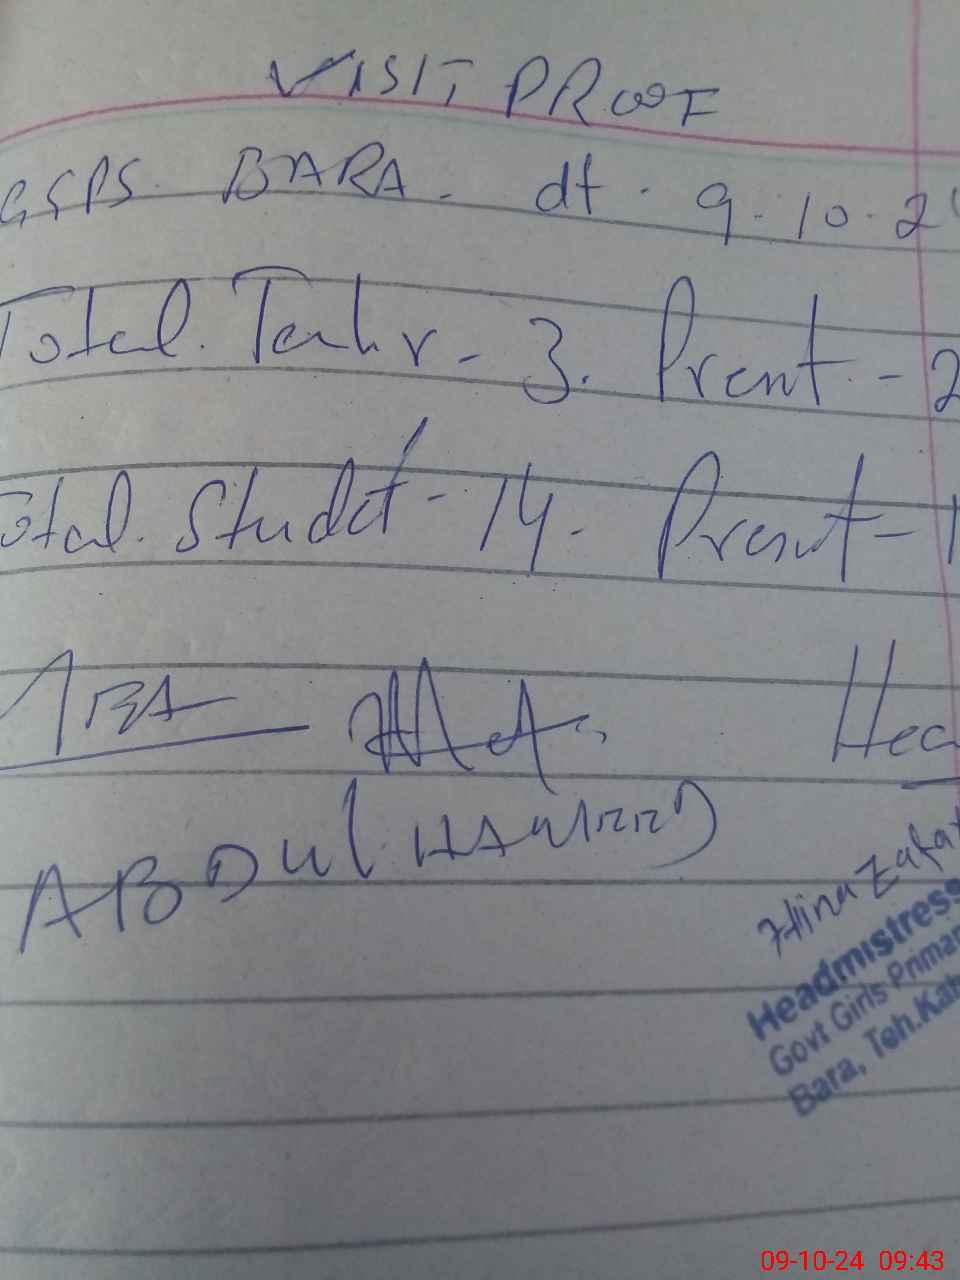 VISIT PROOF
GGPS. BARA. dt. 9.10.2
Total. Teahr - 3. Prent - 2
otal. Studet - 14. Presnt - 1
Hea
ABDUl HAMEED
Hina Zafar
Headmistress
Govt Girls Primar
Bara, Teh.Kah
09-10-24 09:43